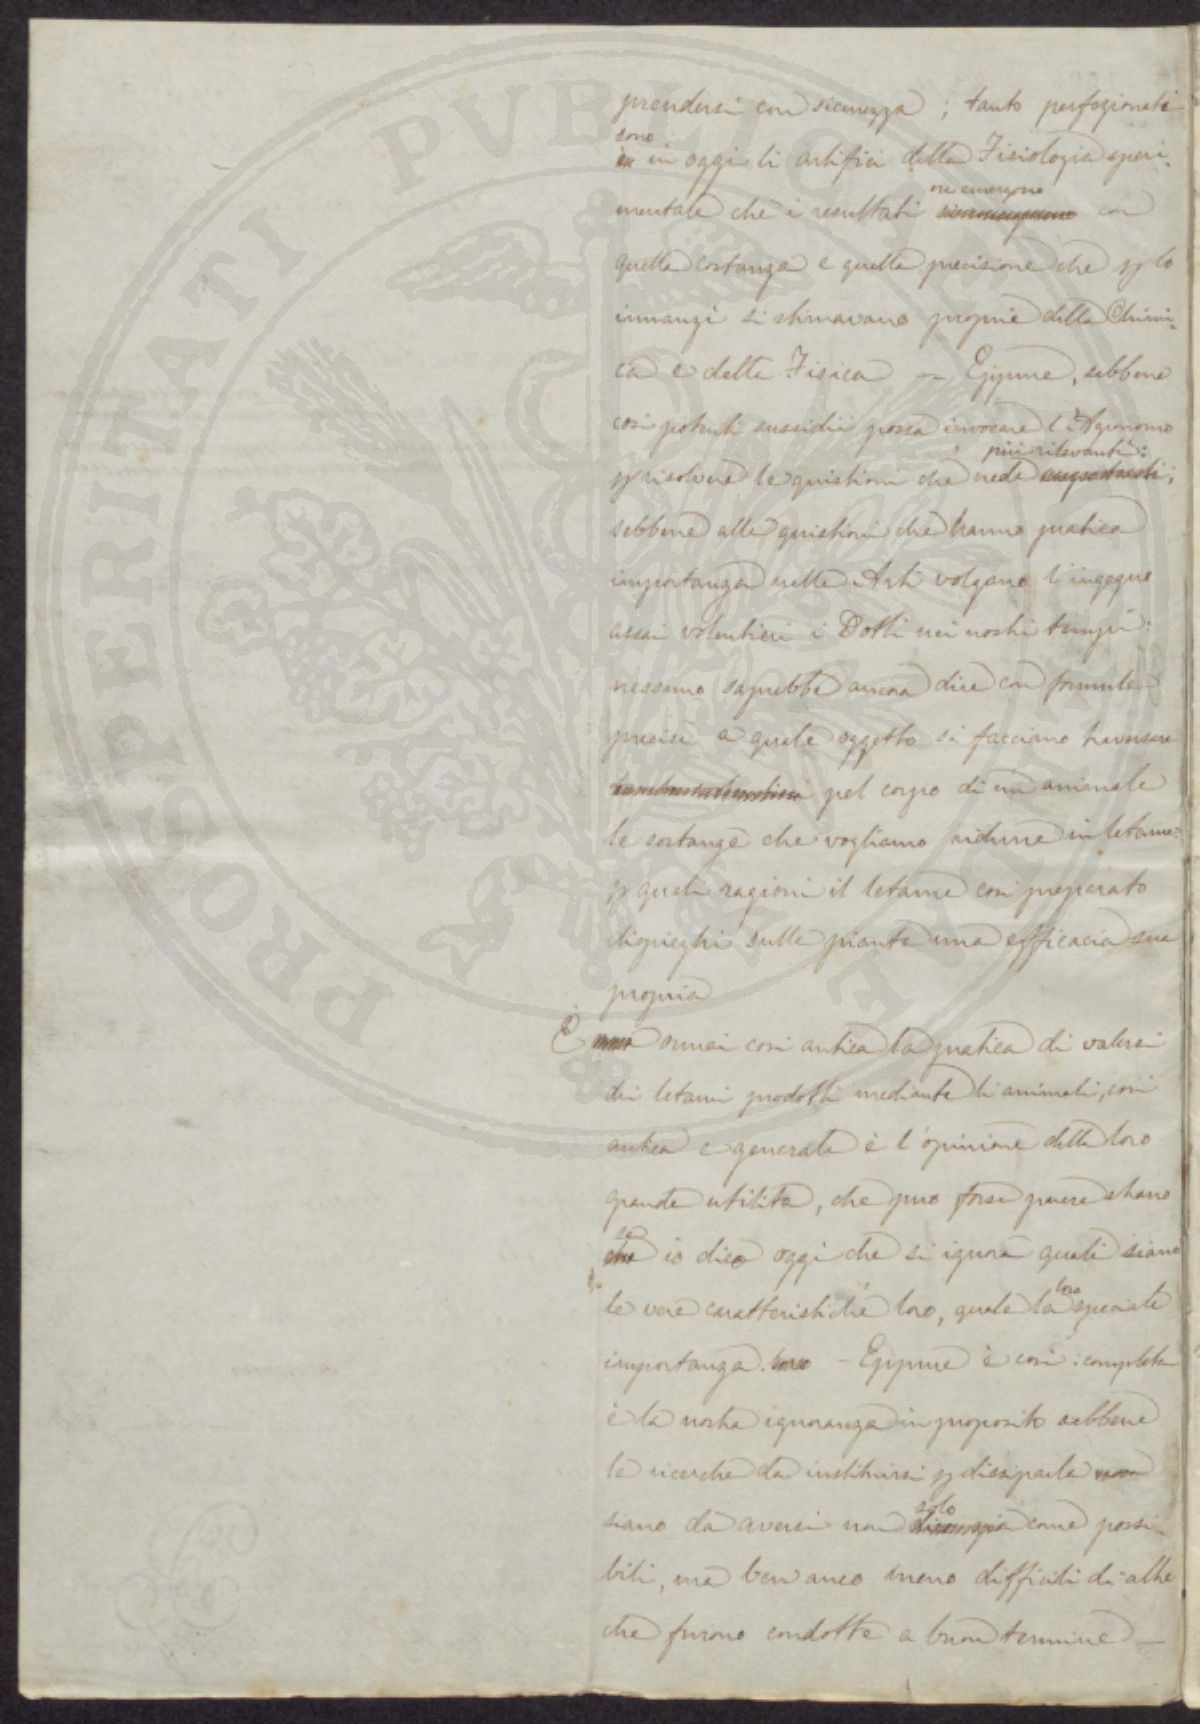 prendersi con sicurezza ; tanto perfezionati
sono
in oggi li artifici della Fisiologia speri-
ne emergono
mentale che i resultati con
quella costanza e quella precisione che p lo
innanzi si stimavano proprie della Chimi-
ca e della Fisica — Eppure, sebbene
così potenti sussidii possa invocare l'Agronomo
più rilevanti:
p risolvere le quistioni che vede
sebbene alle quistioni che hanno pratica
importanza nelle Arti volgano l'ingegno
assai volentieri i Dotti nei nostri tempi:
nessuno saprebbe ancora dire con formule
precise a quale oggetto si facciano traversare
pel corpo di un animale
le sostanze che vogliamo ridurre in letame:
p quali ragioni il letame così preparato
dispieghi sulle piante una efficacia sua
propria
È omai così antica la pratica di valersi
dei letami prodotti mediante li animali, così
antica e generale è l'opinione della loro
grande utilità, che può forse parere strano
se
che io dico oggi che si ignora quali siano
loro
le vere caratteristiche loro, quale la speciale
importanza. loro – Eppure è così: completa
è la nostra ignoranza in proposito sebbene
le ricerche da instituirsi p dissiparla non
solo
siano da aversi non come possi-
bili, ma ben anco meno difficili di altre
che furono condotte a buon termine —
PROSPERITATI PVBLICAE